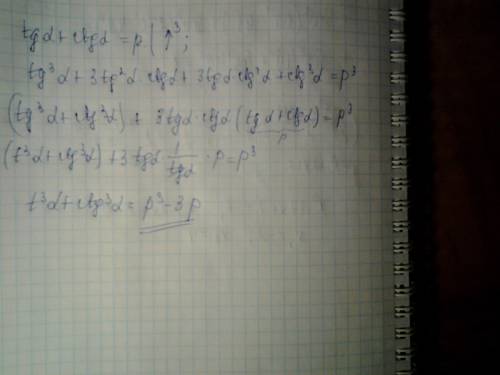 tgα + ctgα = p | ↑³;
tg³α + 3tg²α · ctgα + 3tgα · ctg²α + ctg³α = p³
(tg³α + ctg³α) + 3tgα · ctgα (tgα + ctgα) = p³
p
(t³α + ctg³α) + 3tgα · 1/tgα · p = p³
t³α + ctg³α = p³ - 3p